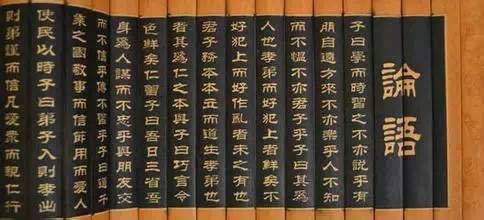 論語
子曰學而時習之不亦説乎有
朋自遠方來不亦樂乎人不知
而不慍不亦君子乎有子曰其為
人也孝弟而好犯上者鮮矣不
好犯上而好作亂者未之有也
君子務本本立而道生孝弟也
者其為仁之本與子曰巧言令
色鮮矣仁曾子曰吾日三省吾
身為人謀而不忠乎與朋友交
而不信乎傳不習乎子曰道千
乘之國敬事而信節用而愛人
使民以時子曰弟子入則孝出
則弟謹而信凡愛眾而親仁行